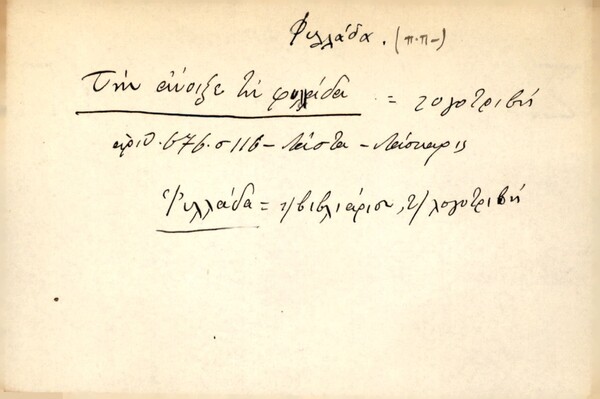 Φυλλάδα. (π.π-)
Την άνοιξε τη φυλλάδα = λογοτριβή
αριθ. 676. σ 116 - Λάστα - Λάσκαρις
Φυλλάδα = η βιβλιάριον, η λογοτριβή